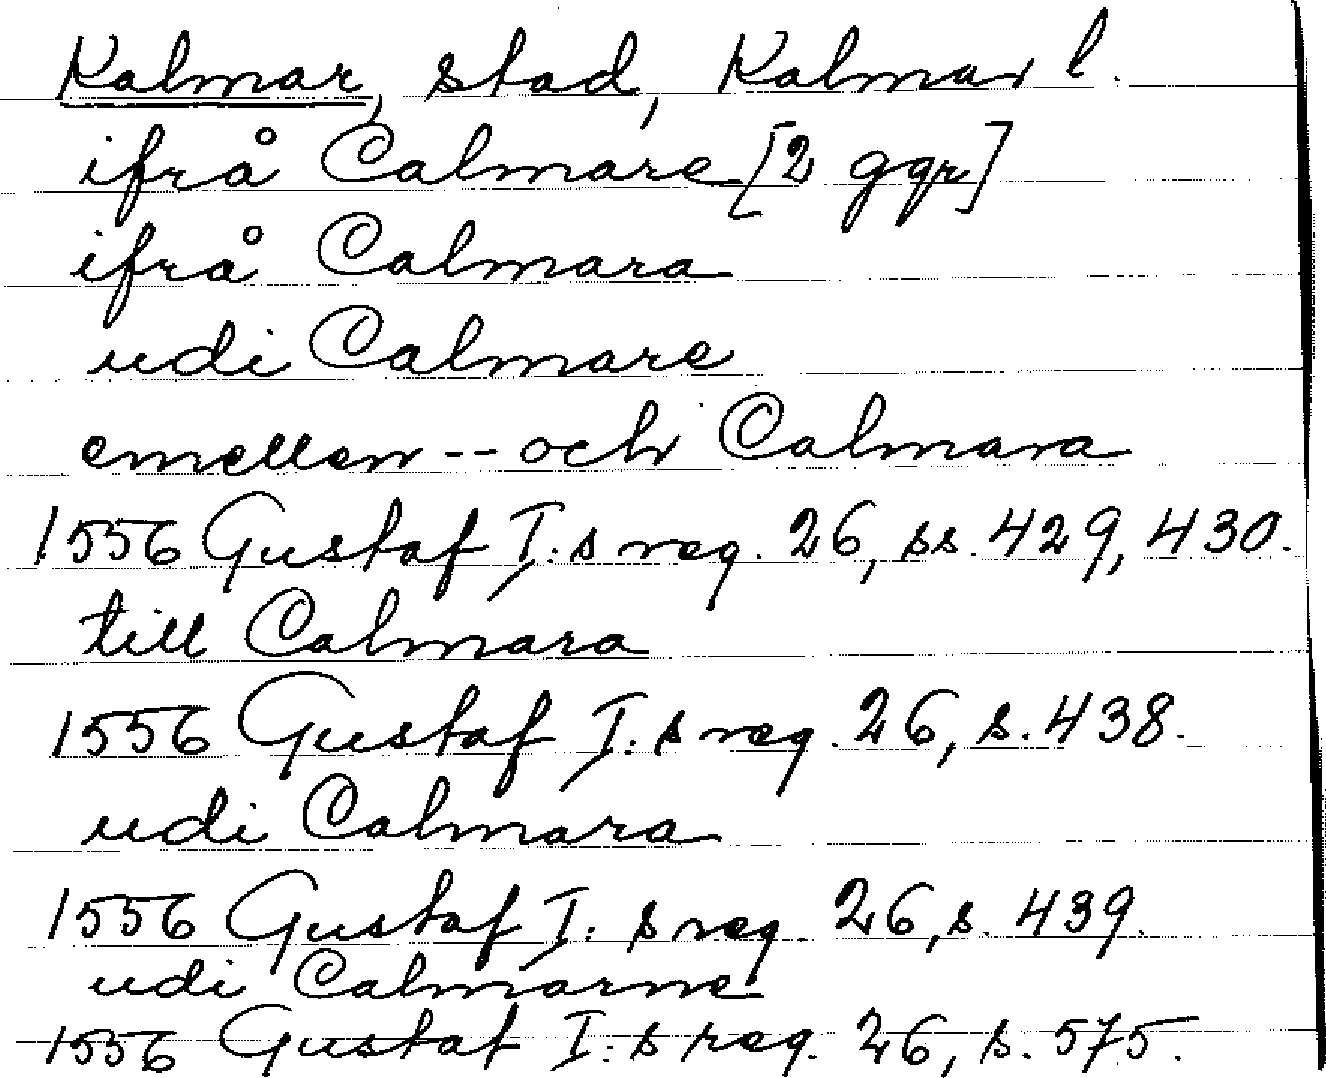 Kalmar, stad, Kalmar l.
ifrå Calmare [2 ggr]
ifrå Calmara
udi Calmare
emellen -- och Calmara
1556 Gustaf I:s reg. 26, ss. 429, 430.
till Calmara
1556 Gustaf I:s reg. 26, s. 438.
udi Calmara
1556 Gustaf I:s reg. 26, s. 439.
udi Calmarne
1556 Gustaf I:s reg. 26, s. 575.